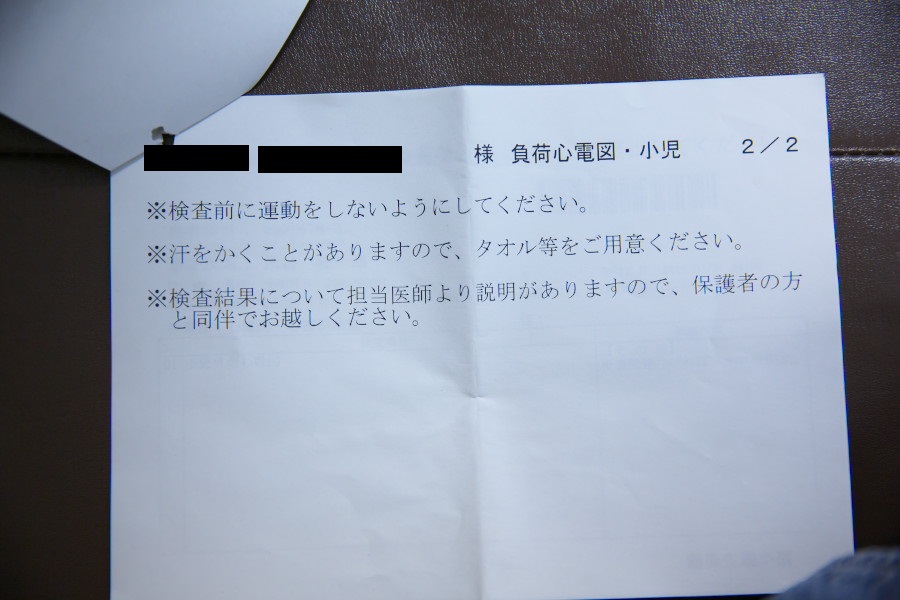 様 負荷心電図・小児 2/2
※検査前に運動をしないようにしてください。
※汗をかくことがありますので、タオル等をご用意ください。
※検査結果について担当医師より説明がありますので、保護者の方
と同伴でお越しください。